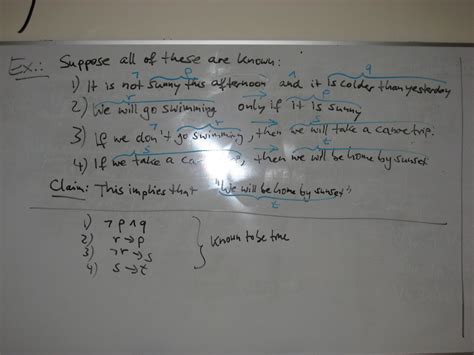 Ex.: Suppose all of these are known:
p ∧ q
1) It is not sunny this afternoon and it is colder than yesterday
r p
2) We will go swimming only if it is sunny
r → s
3) If we don't go swimming, then we will take a canoe trip.
s → t
4) If we take a canoe trip, then we will be home by sunset
Claim: This implies that "We will be home by sunset"
t
1) ¬p ∧ q
2) r → p
3) ¬r → s
4) s → t
Known to be true